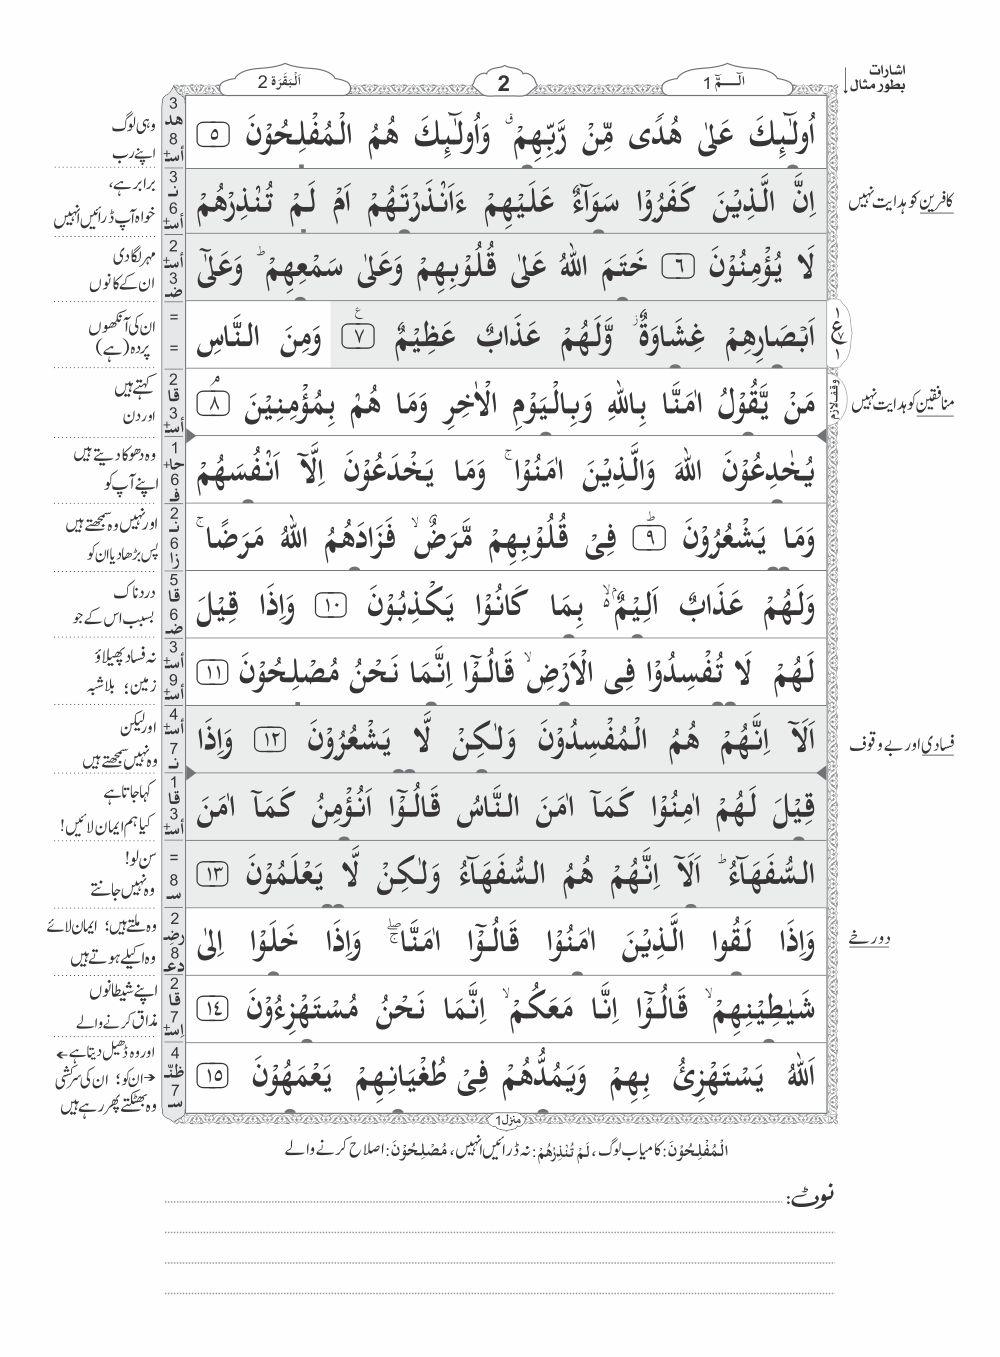 اشارات
بطور مثال
الٓـــمّٓ 1
2
اَلْبَقَرَة 2
اُولٰٓئِكَ عَلٰى هُدًى مِّنْ رَّبِّهِمْ ۗ وَاُولٰٓئِكَ هُمُ الْمُفْلِحُوْنَ ٥
اِنَّ الَّذِيْنَ كَفَرُوْا سَوَآءٌ عَلَيْهِمْ ءَاَنْذَرْتَهُمْ اَمْ لَمْ تُنْذِرْهُمْ
لَا يُؤْمِنُوْنَ ٦ خَتَمَ اللّٰهُ عَلٰى قُلُوْبِهِمْ وَعَلٰى سَمْعِهِمْ ؕ وَعَلٰٓى
اَبْصَارِهِمْ غِشَاوَةٌ ۫ وَّلَهُمْ عَذَابٌ عَظِيْمٌ ٧ وَمِنَ النَّاسِ
مَنْ يَّقُوْلُ اٰمَنَّا بِاللّٰهِ وَبِالْيَوْمِ الْاٰخِرِ وَمَا هُمْ بِمُؤْمِنِيْنَ ٨
يُخٰدِعُوْنَ اللّٰهَ وَالَّذِيْنَ اٰمَنُوْا ۚ وَمَا يَخْدَعُوْنَ اِلَّآ اَنْفُسَهُمْ
وَمَا يَشْعُرُوْنَ ٩ فِىْ قُلُوْبِهِمْ مَّرَضٌ ۙ فَزَادَهُمُ اللّٰهُ مَرَضًا ۚ
وَلَهُمْ عَذَابٌ اَلِيْمٌ ۙ بِمَا كَانُوْا يَكْذِبُوْنَ ١٠ وَاِذَا قِيْلَ
لَهُمْ لَا تُفْسِدُوْا فِى الْاَرْضِ ۙ قَالُوْٓا اِنَّمَا نَحْنُ مُصْلِحُوْنَ ١١
اَلَآ اِنَّهُمْ هُمُ الْمُفْسِدُوْنَ وَلٰكِنْ لَّا يَشْعُرُوْنَ ١٢ وَاِذَا
قِيْلَ لَهُمْ اٰمِنُوْا كَمَآ اٰمَنَ النَّاسُ قَالُوْٓا اَنُؤْمِنُ كَمَآ اٰمَنَ
السُّفَهَآءُ ؕ اَلَآ اِنَّهُمْ هُمُ السُّفَهَآءُ وَلٰكِنْ لَّا يَعْلَمُوْنَ ١٣
وَاِذَا لَقُوا الَّذِيْنَ اٰمَنُوْا قَالُوْٓا اٰمَنَّا ۚۖ وَاِذَا خَلَوْا اِلٰى
شَيٰطِيْنِهِمْ ۙ قَالُوْٓا اِنَّا مَعَكُمْ ۙ اِنَّمَا نَحْنُ مُسْتَهْزِءُوْنَ ١٤
اَللّٰهُ يَسْتَهْزِئُ بِهِمْ وَيَمُدُّهُمْ فِىْ طُغْيَانِهِمْ يَعْمَهُوْنَ ١٥
منزل 1
کافرین کو ہدایت نہیں
منافقین کو ہدایت نہیں
فسادی اور بے وقوف
دو رخے
وقف لازم
وہی لوگ
اپنے رب
برابر ہے،
خواہ آپ ڈرائیں انہیں
مہر لگا دی
ان کے کانوں
ان کی آنکھوں
پردہ (ہے)
کہتے ہیں
اور دن
وہ دھوکا دیتے ہیں
اپنے آپ کو
اور نہیں وہ سمجھتے ہیں
پس بڑھا دیا ان کو
دردناک
بسبب اس کے جو
نہ فساد پھیلاؤ
زمین؛ بلاشبہ
اور لیکن
وہ نہیں سمجھتے ہیں
کہا جاتا ہے
کیا ہم ایمان لائیں!
سن لو!
وہ نہیں جانتے
وہ ملتے ہیں؛ ایمان لائے
وہ اکیلے ہوتے ہیں
اپنے شیطانوں
مذاق کرنے والے
اور وہ ڈھیل دیتا ہے←
→ان کو؛ ان کی سرکشی
وہ بھٹکتے پھر رہے ہیں
اَلْمُفْلِحُوْنَ: کامیاب لوگ، لَمْ تُنْذِرْهُمْ: نہ ڈرائیں انہیں، مُصْلِحُوْنَ: اصلاح کرنے والے
نوٹ: